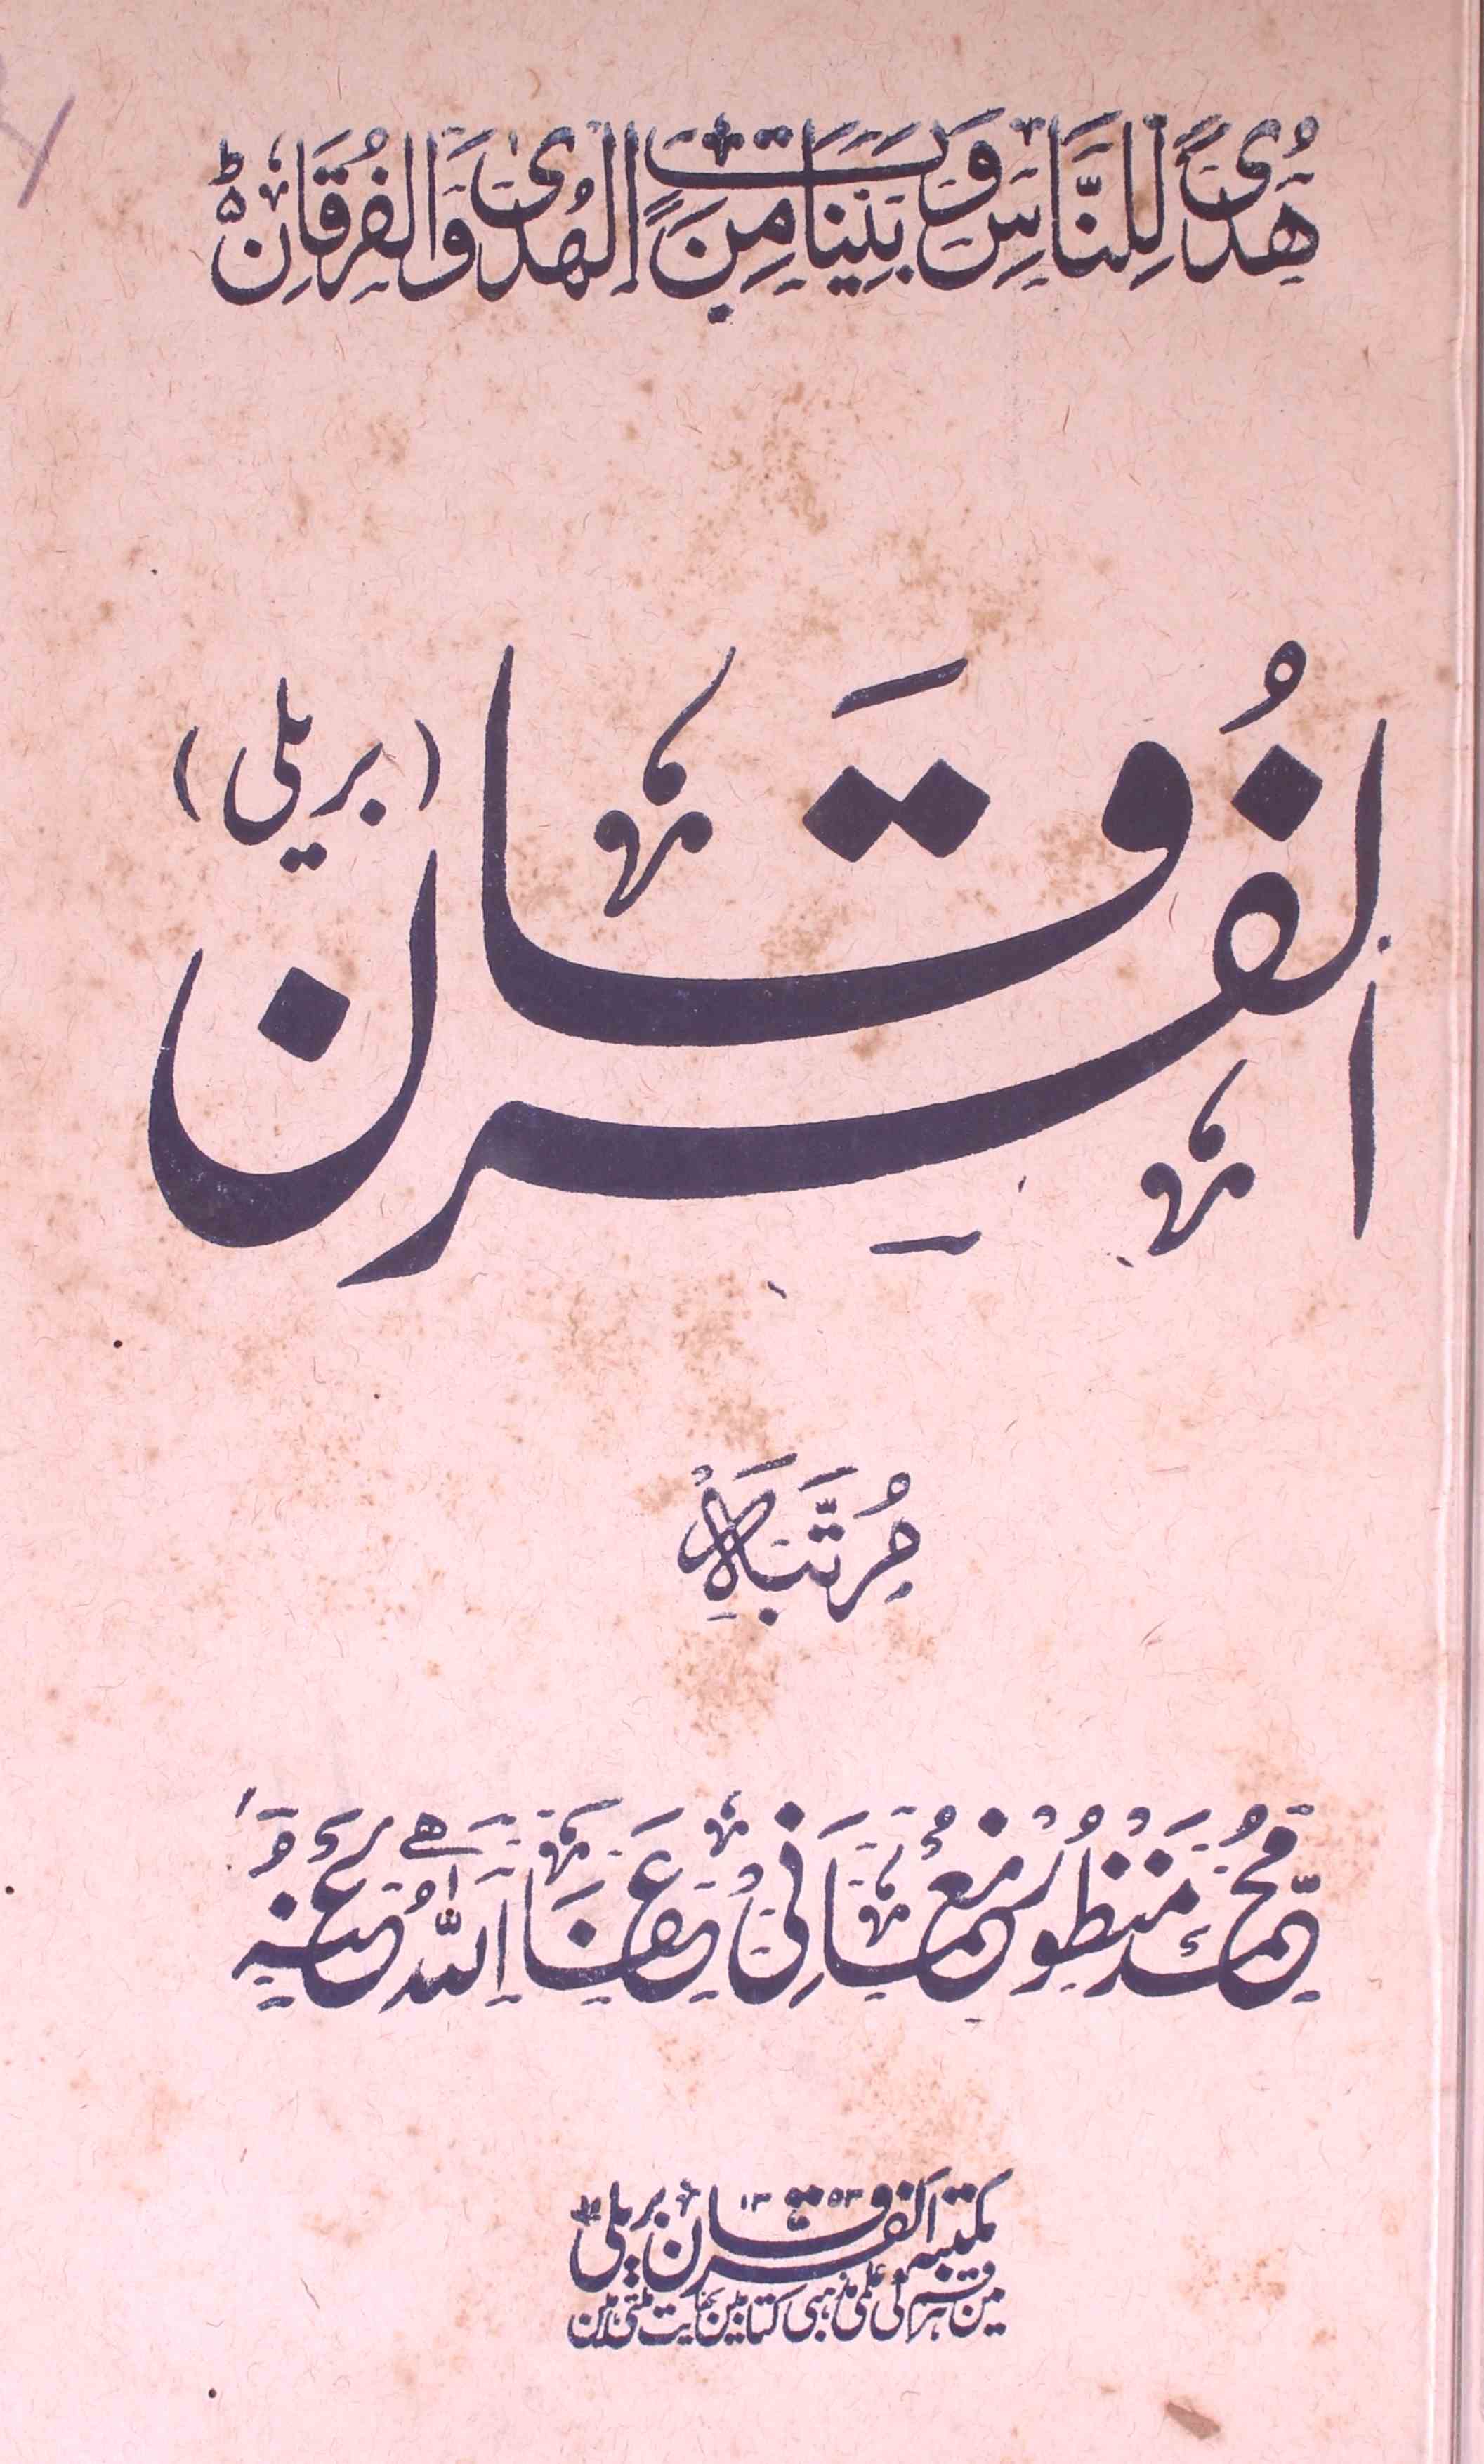 هُدًى لِلنَّاسِ وَبَيِّنَاتٍ مِنَ الْهُدَىٰ وَالْفُرْقَانِ ط
الفُرقَان
(بریلی)
مُرَتَّبَہ
مُحَمَّد مَنْظُور نُعْمَانِی عَفَا اللّٰهُ عَنْهُ
مکتبہ الفرقان بریلی
میں ہر قسم کی علمی مذہبی کتابیں بکفایت ملتی ہیں